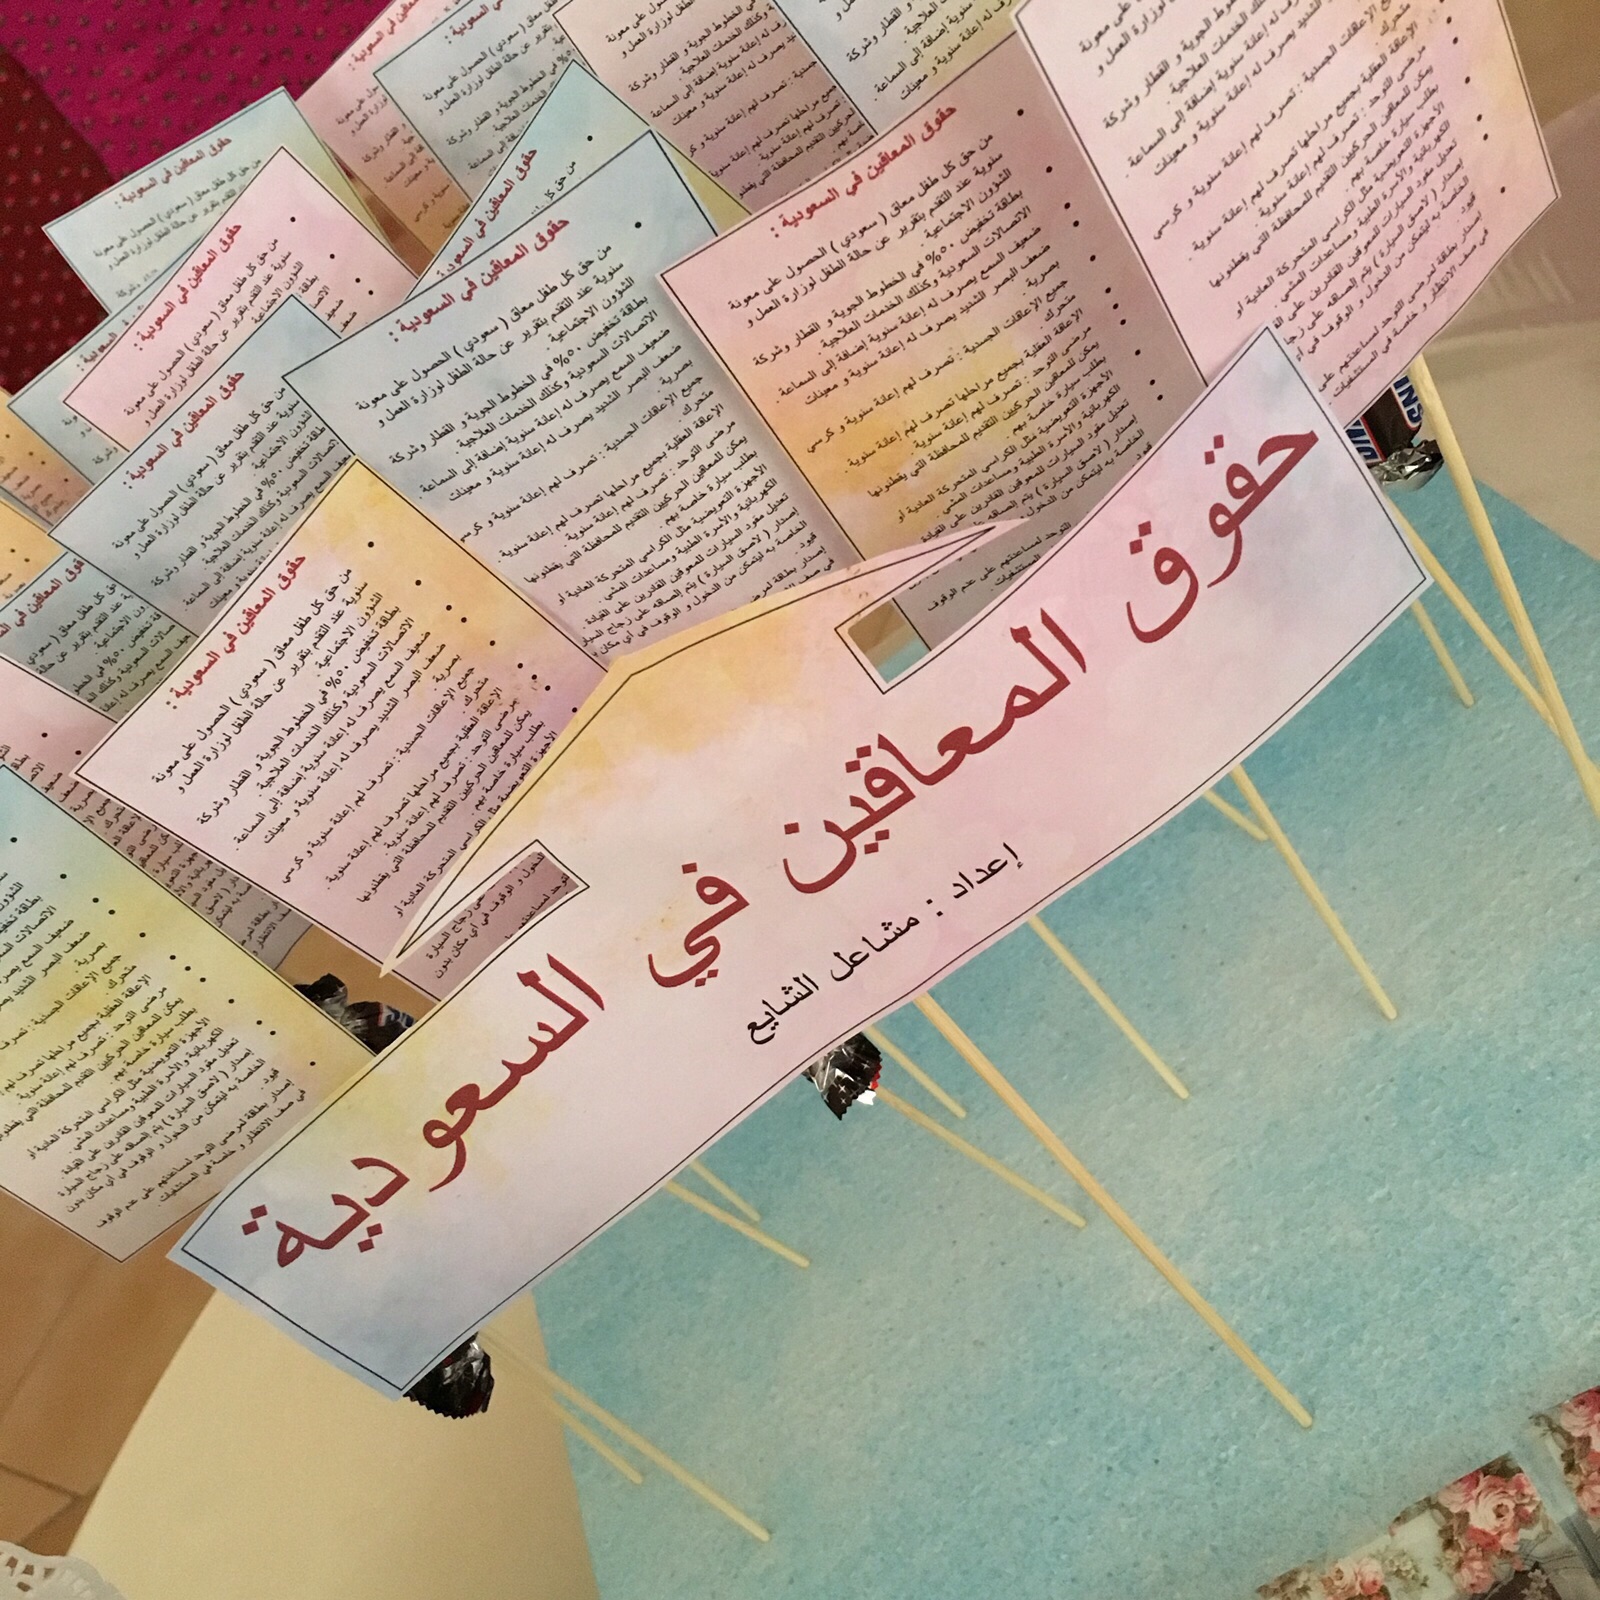 حقوق المعاقين في السعودية
إعداد : مشاعل الشايع
حقوق المعاقين في السعودية :
من حق كل طفل معاق ( سعودي ) الحصول على معونة
سنوية عند التقدم بتقرير عن حالة الطفل لوزارة العمل و
الشؤون الاجتماعية .
بطاقة تخفيض ٥٠% في الخطوط الجوية و القطار وشركة
الاتصالات السعودية وكذلك الخدمات العلاجية .
ضعيف السمع يصرف له إعانة سنوية إضافة إلى السماعة .
ضعف البصر الشديد يصرف له إعانة سنوية و معينات
بصرية .
جميع الإعاقات الجسدية : تصرف لهم إعانة سنوية و كرسي
متحرك .
الإعاقة العقلية بجميع مراحلها تصرف لهم إعانة سنوية .
مرضى التوحد : تصرف لهم إعانة سنوية .
يمكن للمعاقين الحركيين التقديم للمحافظة التي يقطنونها
بطلب سيارة خاصة بهم .
الأجهزة التعويضية مثل الكراسي المتحركة العادية او
الكهربائية والأسرة الطبية ومساعدات المشي .
تعديل مقود السيارات للمعوقين القادرين على القيادة .
إصدار ( لاصق السيارة ) يتم إلصاقه على زجاج السيارة
الخاصة به ليتمكن من الدخول و الوقوف في أي مكان بدون
قيود .
إصدار بطاقة لمرضى التوحد لمساعدتهم على عدم الوقوف
في صف الانتظار و خاصة في المستشفيات .